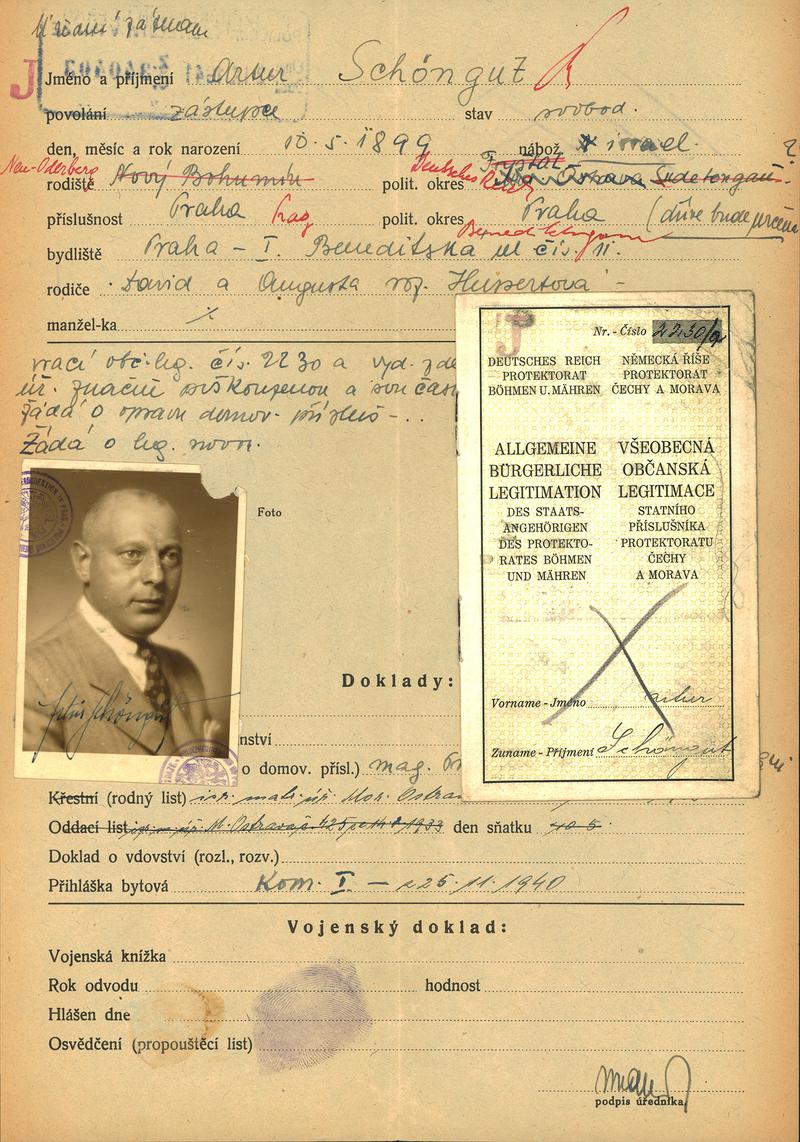 J
Jméno a příjmení Artur Schöngut
povolání zástupce stav svobod.
den, měsíc a rok narození 10.5.1899 nábož. israel.
Neu-Oderberg Deutsches Reich Frystat
rodiště Nový Bohumín polit. okres Ostrava Sudetengau ?
příslušnost Praha Prag polit. okres Praha (dříve bude určena
bydliště Praha - I. Beneditská ul čís. 11.
rodiče David a Augusta roz. Huppertová -
manžel-ka
vrací obč. leg. čís. 2230 a vyd. zde
žádá o opravu domov. přísluš-..
Žádá o leg. novou.
Foto
Artur Schöngut
Doklady:
nství
o domov. přísl.) mag.
Křestní (rodný list) isr. mat. úř. Mor. Ostrava
Oddací list M. Ostrava 1933 den sňatku
Doklad o vdovství (rozl., rozv.)
Přihláška bytová Kom. I - z 25.11.1940
Vojenský doklad:
Vojenská knížka
Rok odvodu hodnost
Hlášen dne
Osvědčení (propouštěcí list)
podpis úředníka
J
Nr. - Číslo 2230/
DEUTSCHES REICH
PROTEKTORAT
BÖHMEN U. MÄHREN
NĚMECKÁ ŘÍŠE
PROTEKTORAT
ČECHY A MORAVA
ALLGEMEINE
BÜRGERLICHE
LEGITIMATION
DES STAATS-
ANGEHÖRIGEN
DES PROTEKTO-
RATES BÖHMEN
UND MÄHREN
VŠEOBECNÁ
OBČANSKÁ
LEGITIMACE
STATNÍHO
PŘÍSLUŠNÍKA
PROTEKTORATU
ČECHY
A MORAVA
Vorname - Jméno Artur
Zuname - Příjmení Schöngut